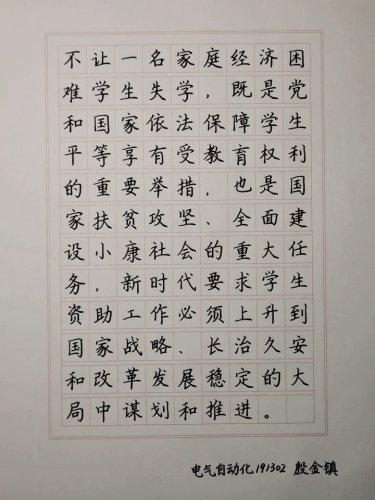 不让一名家庭经济困
难学生失学，既是党
和国家依法保障学生
平等享有受教育权利
的重要举措，也是国
家扶贫攻坚、全面建
设小康社会的重大任
务，新时代要求学生
资助工作必须上升到
国家战略、长治久安
和改革发展稳定的大
局中谋划和推进。
电气自动化191302 殷金镇